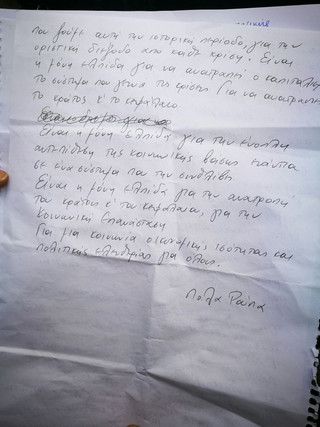 που βιώνει αυτή την ιστορική περίοδο, για την
οριστική διέξοδο από κάθε κρίση. Είναι
η μόνη ελπίδα για να ανατραπεί ο καπιταλισμός
το σύστημα που γεννά τις κρίσεις για να ανατραπούν
το κράτος κ' το κεφάλαιο
Είναι η μόνη ελπίδα για την ένοπλη
αντεπίθεση της κοινωνικής βάσης ενάντια
σε ένα σύστημα που την συνθλίβει
Είναι η μόνη ελπίδα για την ανατροπή
του κράτους κ' του κεφαλαίου, για την
Κοινωνική Επανάσταση
Για μια κοινωνία οικονομικής ισότητας και
πολιτικής ελευθερίας για όλους.
Πόλα Ρούπα